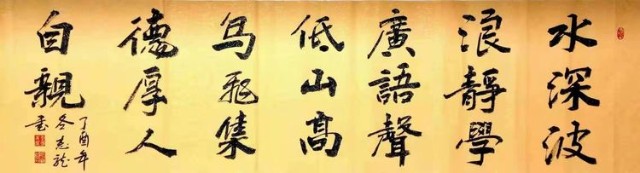 水深波
浪靜學
廣語聲
低山高
鳥飛集
德厚人
自親
丁酉年
冬志龍
書